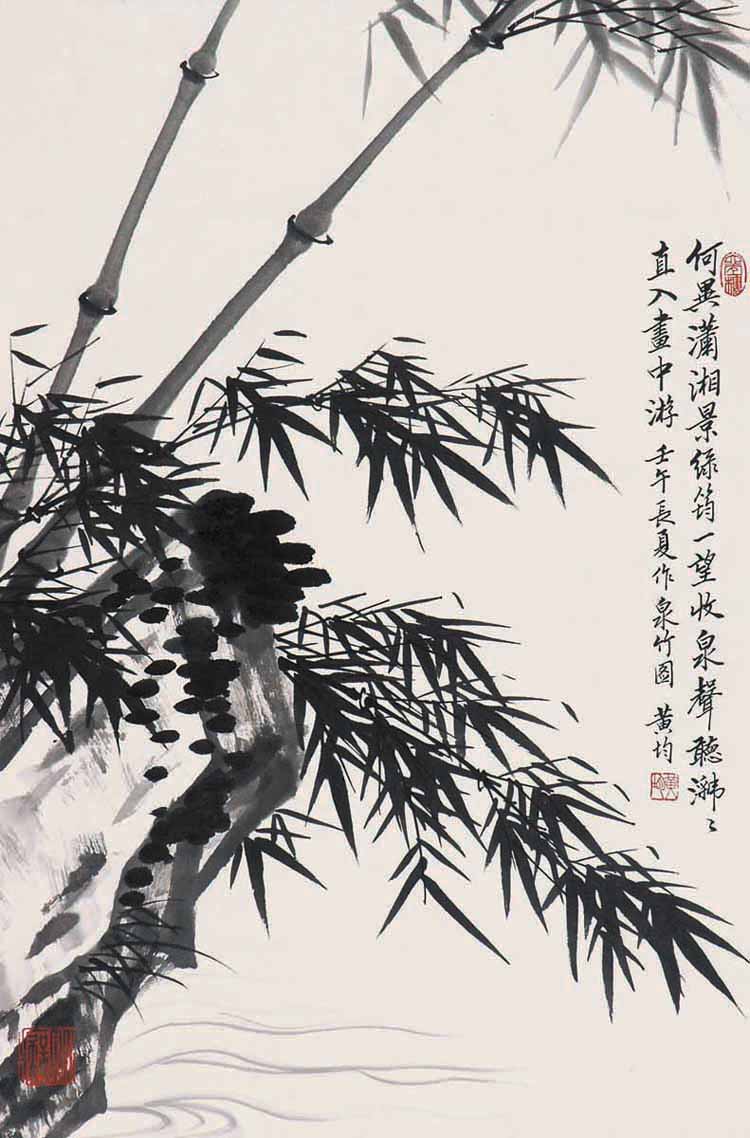 何異瀟湘景綠筠一望收泉聲聽
直入畫中游 壬午長夏作泉竹圖 黃均